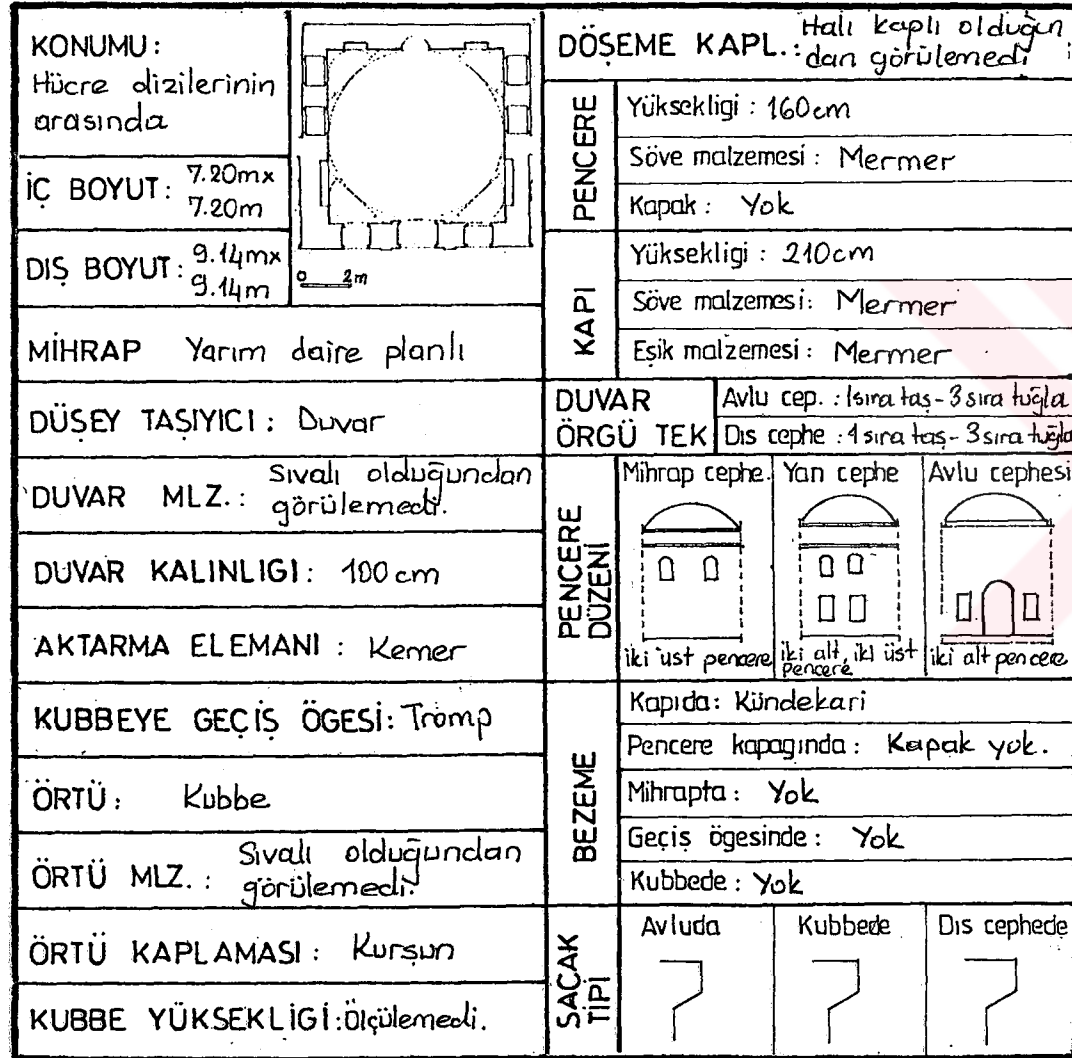 KONUMU:
Hücre dizilerinin
arasında
İÇ BOYUT: 7.20mx
7.20m
DIŞ BOYUT: 9.14mx
9.14m
0 2m
MİHRAP Yarım daire planlı
DÜŞEY TAŞIYICI: Duvar
DUVAR MLZ.: Sıvalı olduğundan
görülemedi.
DUVAR KALINLIGI: 100 cm
AKTARMA ELEMANI : Kemer
KUBBEYE GEÇİŞ ÖGESİ: Tromp
ÖRTÜ: Kubbe
ÖRTÜ MLZ.: Sıvalı olduğundan
görülemedi.
ÖRTÜ KAPLAMASI: Kurşun
KUBBE YÜKSEKLİGİ:Ölçülemedi.
DÖŞEME KAPL.: Halı kaplı olduğun
dan görülemedi
PENCERE
Yüksekligi : 160cm
Söve malzemesi : Mermer
Kapak : Yok
KAPI
Yüksekligi : 210cm
Söve malzemesi: Mermer
Eşik malzemesi : Mermer
DUVAR
ÖRGÜ TEK
Avlu cep. : 1sıra taş-3 sıra tuğla
Dıs cephe : 1 sıra taş-3 sıra tuğla
PENCERE
DÜZENİ
Mihrap cephe. Yan cephe Avlu cephesi
iki üst pencere iki alt, iki üst iki alt pencere
pencere
BEZEME
Kapıda: Kündekari
Pencere kapagında : Kapak yok.
Mihrapta : Yok
Geçiş ögesinde : Yok
Kubbede : Yok
SAÇAK
TİPİ
Avluda Kubbede Dıs cephede